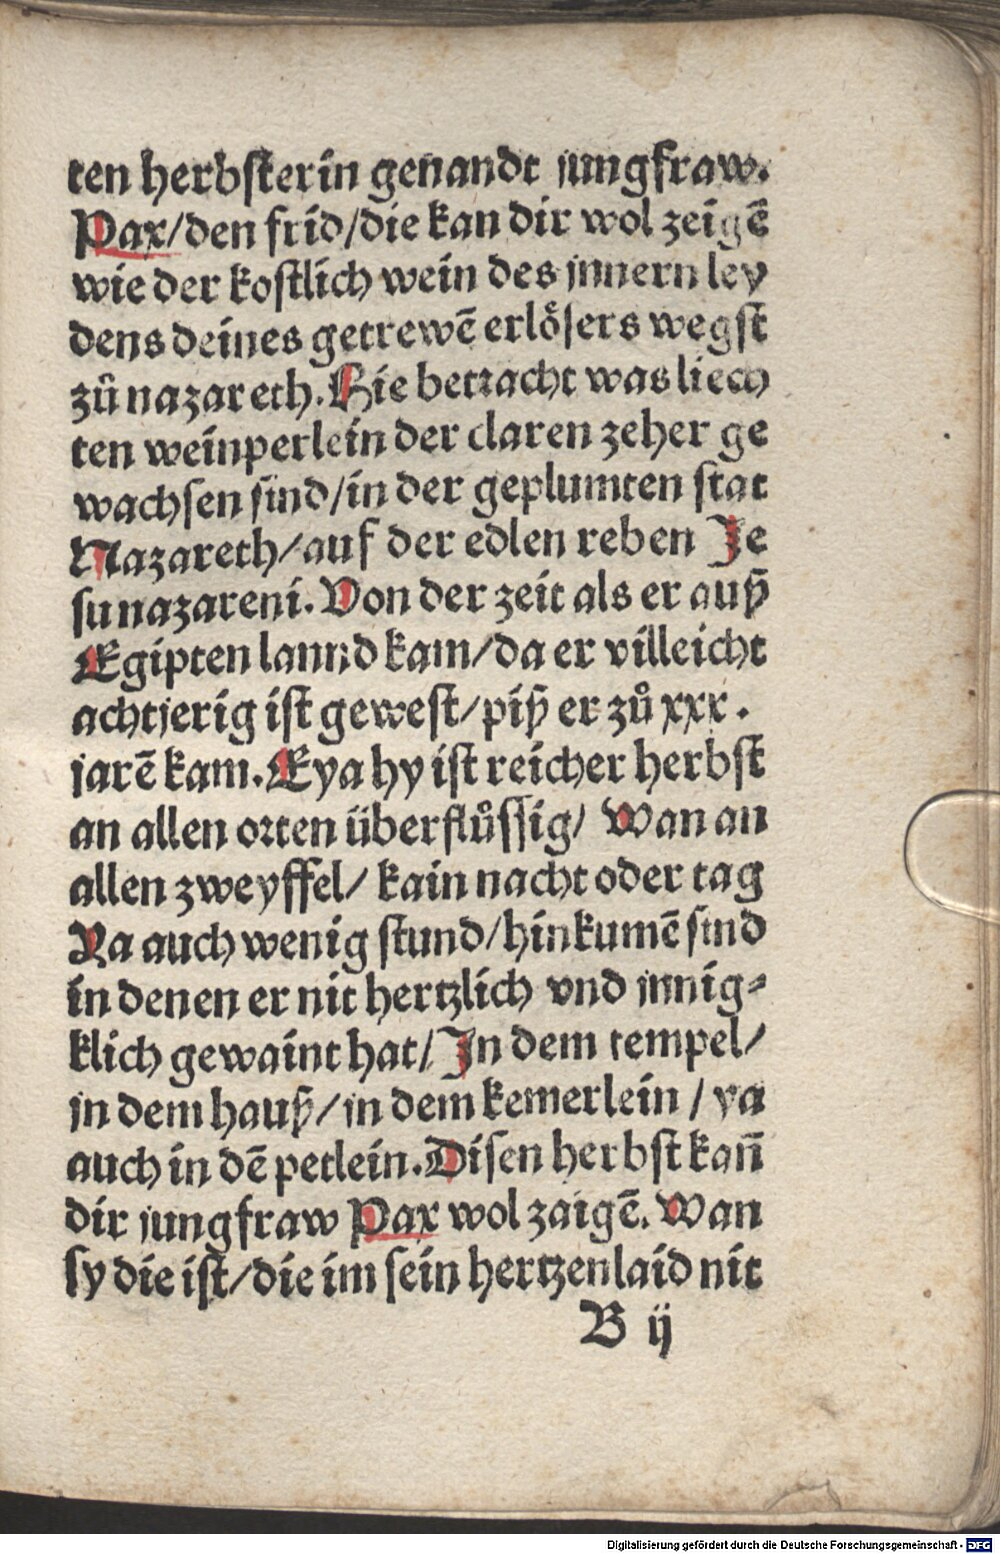 ten herbsterin genandt jungfraw.
Pax/den frid/die kan dir wol zeigē
wie der kostlich wein des jnnern ley
dens deines getrewē erlösers wegst
zů nazareth. Hie betracht was liech
ten weinperlein der claren zeher ge
wachsen sind/in der geplumten stat
Nazareth/auf der edlen reben Je
su nazareni. Von der zeit als er auß
Egipten lannd kam/da er villeicht
achtjerig ist gewest/piß er zů xxx.
jarē kam. Eya hy ist reicher herbst
an allen orten überflůssig/ Wan an
allen zweyffel/ kain nacht oder tag
Ya auch wenig stund/hinkumē sind
in denen er nit hertzlich vnd jnnig⸗
klich gewaint hat/ Jn dem tempel/
jn dem hauß/jn dem kemerlein/ya
auch in dē petlein. Disen herbst kan̄
dir jungfraw Pax wol zaigē. Wan
sy die ist/die im sein hertzenlaid nit
B ij
Digitalisierung gefördert durch die Deutsche Forschungsgemeinschaft - DFG